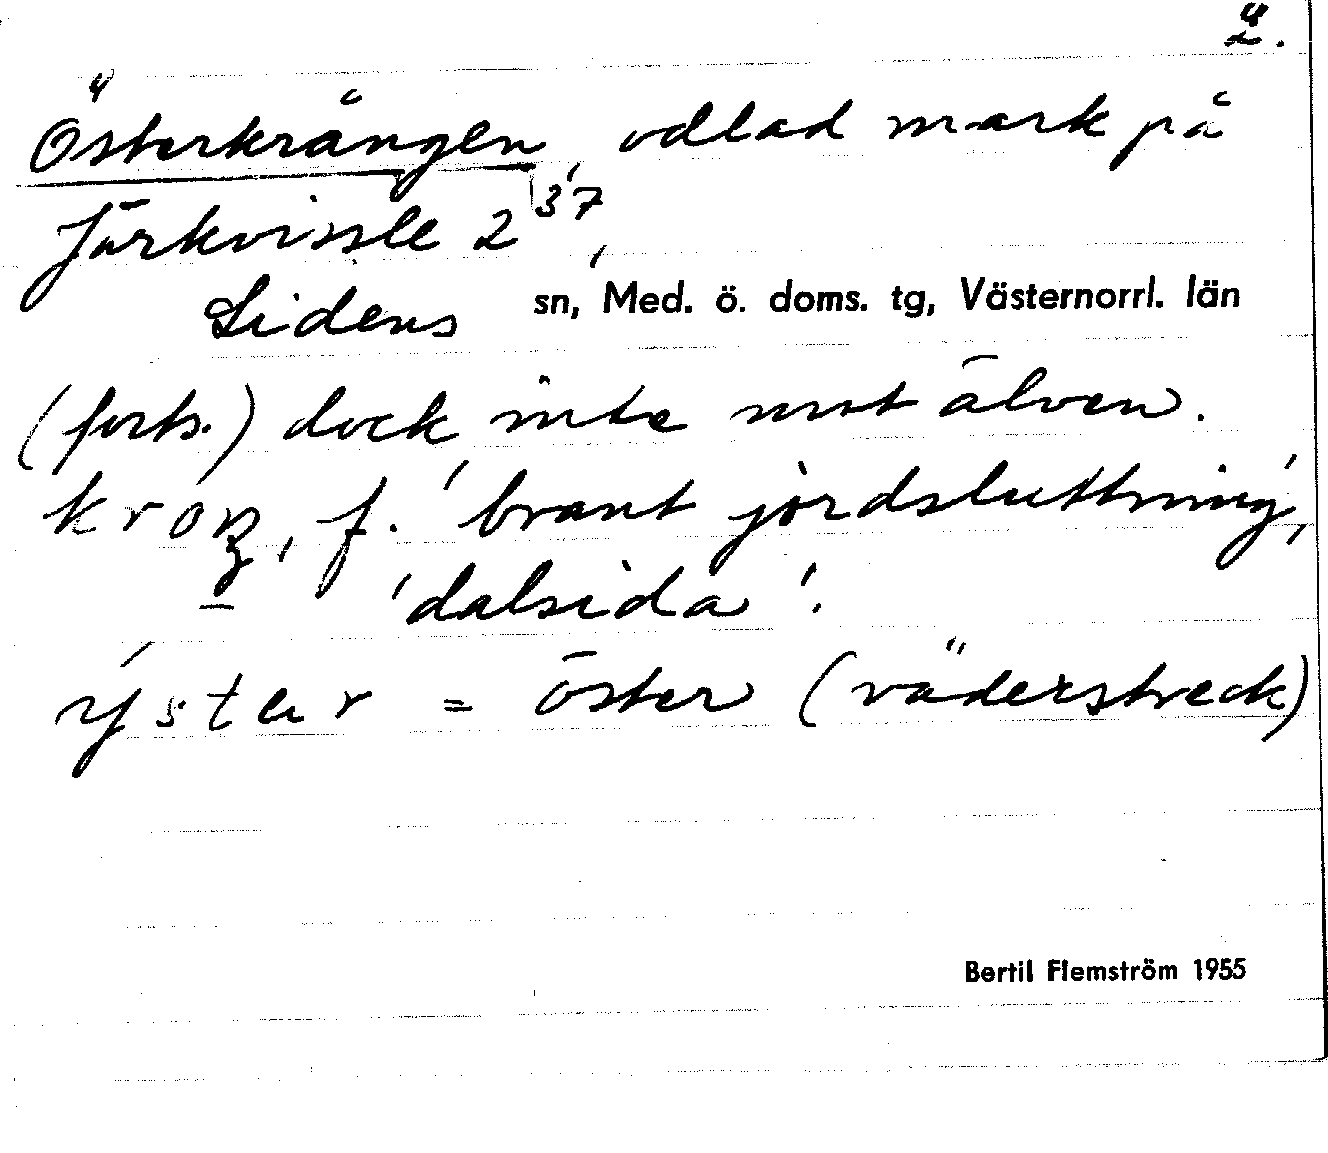 2.
Österkrången, odlad mark på
Järkvissle 2 37,
Lidens sn, Med. ö. doms. tg, Västernorrl. län
(forts.) dock inte mot älven.
kroŋ, f. 'brant jordsluttning',
'dalsida'.
= öster (väderstreck)
Bertil Flemström 1955